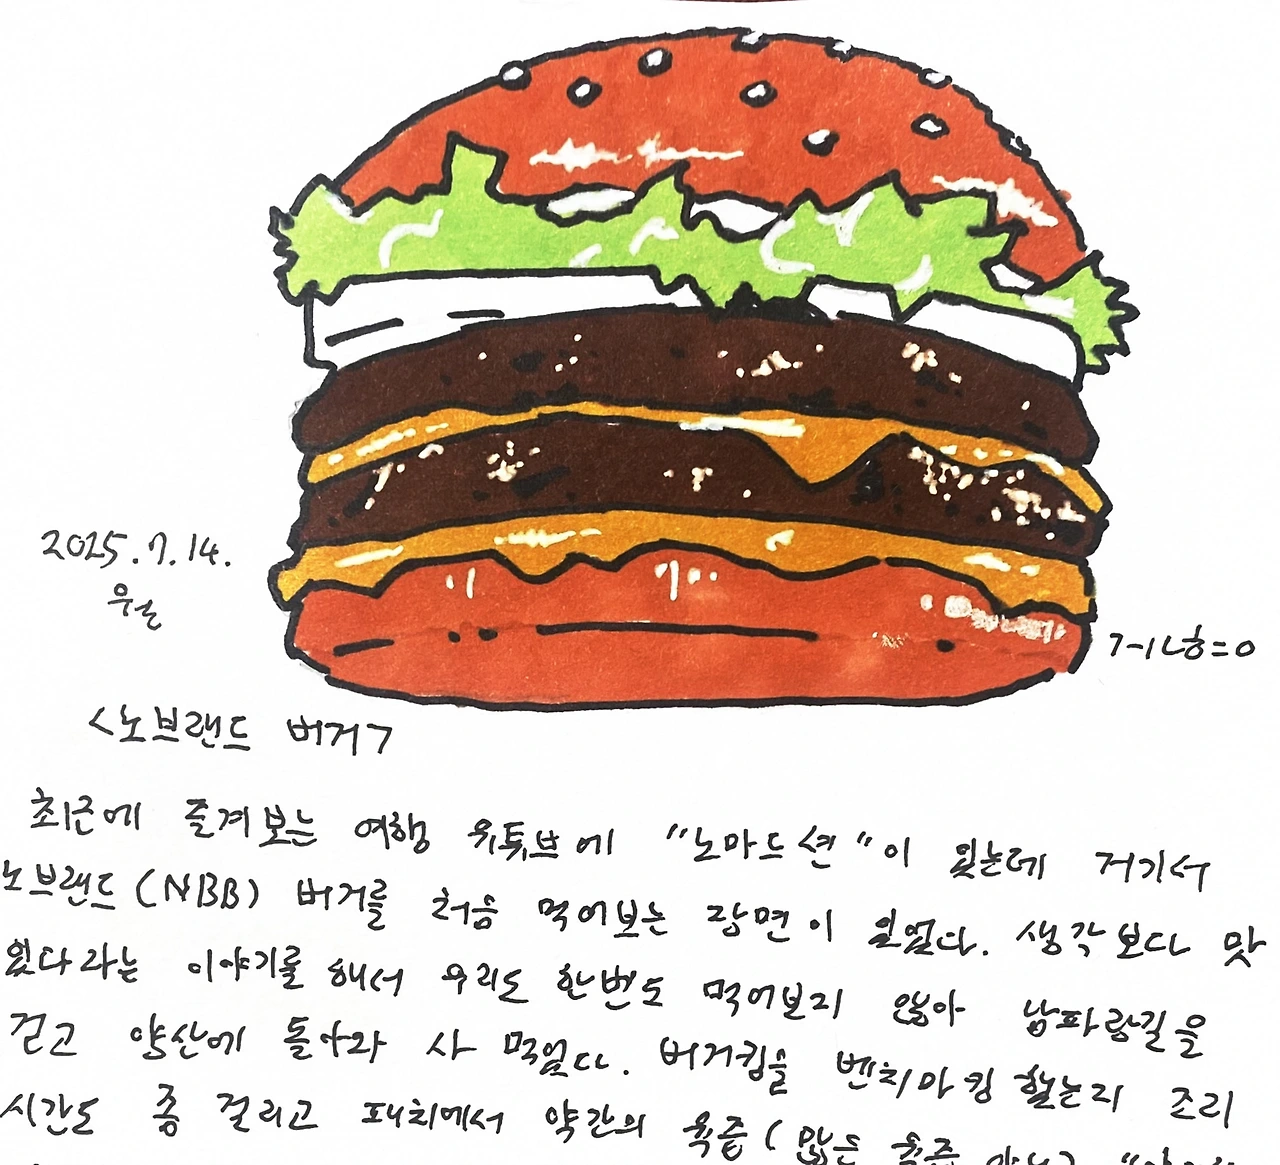 2025.7.14.
<노브랜드 버거>
최근에 즐겨보는 여행 유튜브에 "노마드션"이 있는데 거기서
노브랜드(NBB) 버거를 처음 먹어보는 장면이 있었다. 생각보다 맛
있다라는 이야기를 해서 우리도 한번도 먹어보지 않아 남파랑길을
걷고 양산에 돌아와 사 먹었다. 버거킹을 벤치마킹 했는지 조리
시간도 좀 걸리고 패치에서 약간의 육즙(